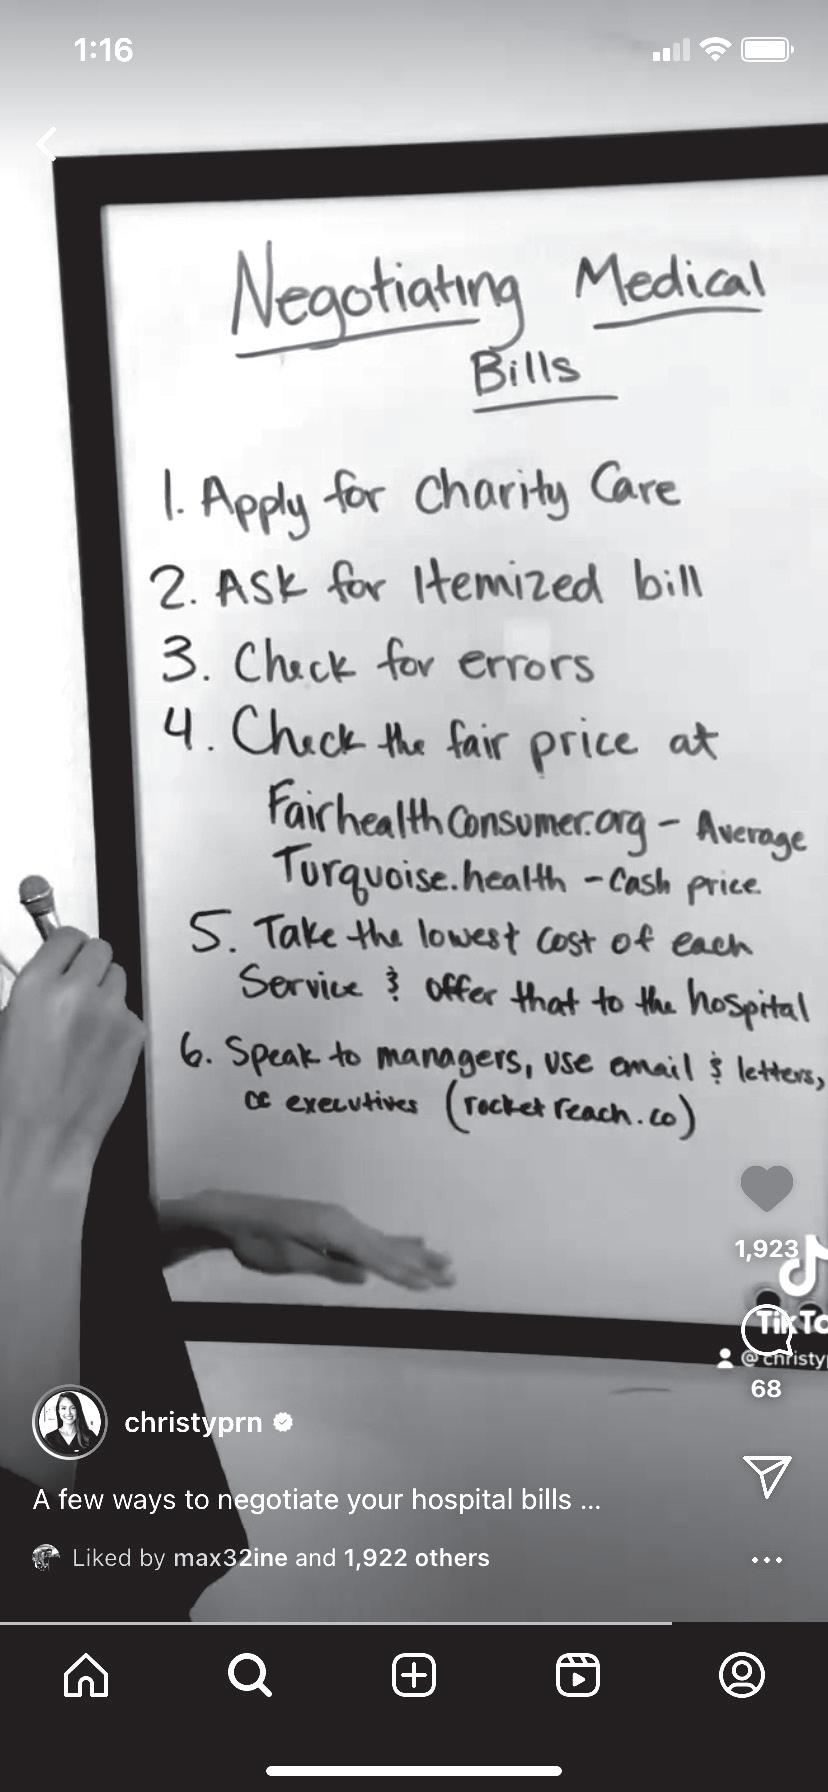 1:16
Negotiating Medical
Bills
1. Apply for Charity Care
2. Ask for Itemized bill
3. Check for errors
4. Check the fair price at
FairhealthConsumer.org - Average
Turquoise.health - Cash price
5. Take the lowest cost of each
Service & offer that to the hospital
6. Speak to managers, use email & letters,
cc executives (rocketreach.co)
1,923
TikTo
@christyp
68
christyprn
A few ways to negotiate your hospital bills ...
Liked by max32ine and 1,922 others